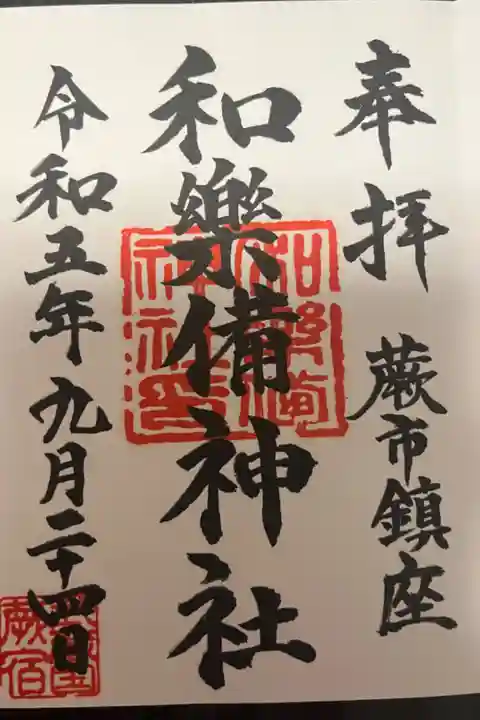 奉拝
蕨市鎮座
和樂備神社
和樂備
神社印
令和五年九月二十四日
蕨宿